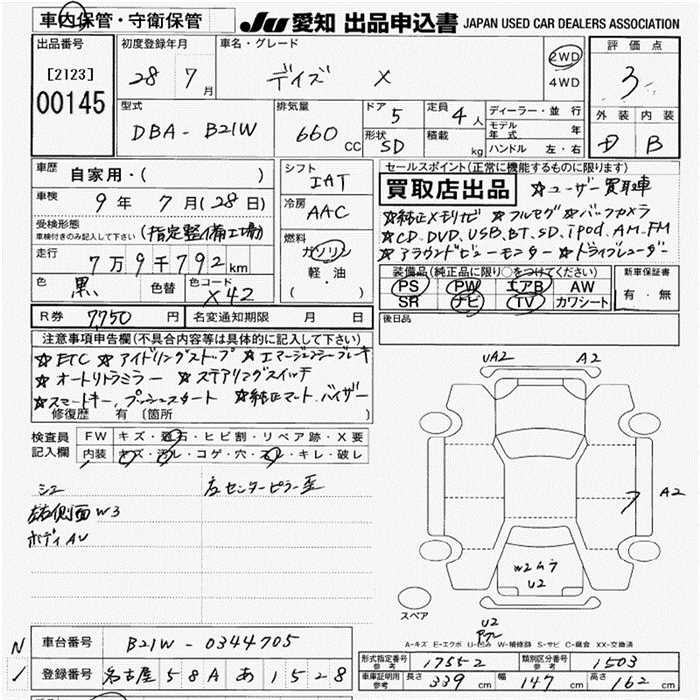 車内保管・守衛保管 JU 愛知 出品申込書 JAPAN USED CAR DEALERS ASSOCIATION
出品番号 [2123] 00145
初度登録年月 28 7月
車名・グレード デイズ X
2WD 4WD
評価点 3
外装 内装 B
型式 DBA-B21W
排気量 660 CC
ドア 5 形状 5D
定員 4人 積載 kg
ディーラー・並行
モデル年式 年
ハンドル 左・右
車歴 自家用・( )
車検 9年 7月(28日)
受検形態 車検付きのみ記入して下さい (指定整備工場)
走行 7万9千792km
色 黒 色替 色コード X42
シフト IAT
冷房 AAC
燃料 ガソリン 軽・油 ( )
セールスポイント(正常に機能するものに限ります)
買取店出品 ☆ユーザー買取車
☆純正メモリナビ ☆フルセグ ☆バックカメラ
☆CD.DVD.USB.BT.SD.iPod.AM.FM
☆アラウンドビューモニター ☆ドライブレコーダー
装備品(純正品に限り○をつけてください)
PS PW エアB AW
SR ナビ TV カワシート
新車保証書 有・無
R券 7,750円 名変通知期限 月 日
後日品
注意事項申告欄(不具合内容等は具体的に記入して下さい)
☆ETC ☆アイドリングストップ ☆エマージェンシーブレーキ
☆オートリトラミラー ☆ステアリングスイッチ
☆スマートキー、プッシュスタート ☆純正マット、バイザー
修復歴 有 (箇所 )
検査員記入欄 FW キズ・飛石・ヒビ割・リペア跡・X要
内装 キズ・汚レ・コゲ・穴・スレ・キレ・破レ
左センターピラー歪
左右側面W3
ボディAU
UA2 A2
A2
W2ムラ
U2
スペア
U2
A-キズ E-エクボ U-凹み W-補修跡 S-サビ C-腐食 XX-交換済
車台番号 B21W-0344705
登録番号 名古屋 58A あ 1528
形式指定番号 参考 17552 類別区分番号 参考 1503
車庫証明用 参考 長さ 339cm 幅 147cm 高さ 162cm